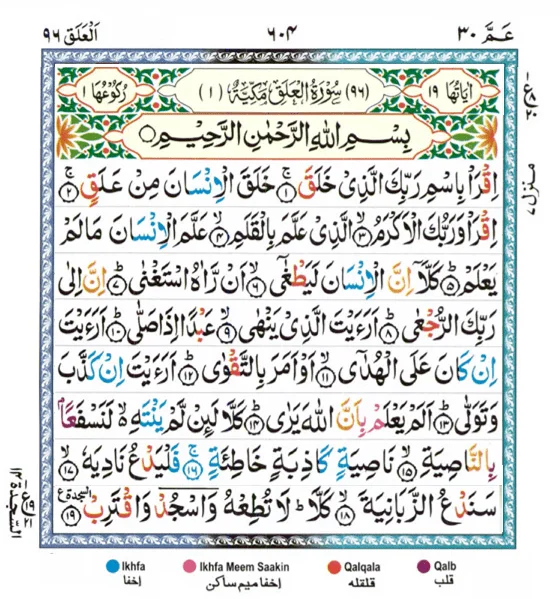 عَمَّ ۳۰
۶۰۴
اَلْعَلَق ۹۶
اٰيَاتُهَا ۱۹
(۹۶) سُوْرَةُ الْعَلَقِ مَكِّيَّةٌ (۱)
رُكُوْعُهَا ۱
بِسْمِ اللهِ الرَّحْمٰنِ الرَّحِيْمِ
اِقْرَاْ بِاسْمِ رَبِّكَ الَّذِىْ خَلَقَ ۚ۝۱ خَلَقَ الْاِنْسَانَ مِنْ عَلَقٍ ۚ۝۲
اِقْرَاْ وَرَبُّكَ الْاَكْرَمُ ۙ۝۳ الَّذِىْ عَلَّمَ بِالْقَلَمِ ۙ۝۴ عَلَّمَ الْاِنْسَانَ مَا لَمْ
يَعْلَمْ ؕ۝۵ كَلَّاۤ اِنَّ الْاِنْسَانَ لَيَطْغٰٓى ۙ۝۶ اَنْ رَّاٰهُ اسْتَغْنٰى ؕ۝۷ اِنَّ اِلٰى
رَبِّكَ الرُّجْعٰى ؕ۝۸ اَرَءَيْتَ الَّذِىْ يَنْهٰى ۙ۝۹ عَبْدًا اِذَا صَلّٰى ؕ۝۱۰ اَرَءَيْتَ
اِنْ كَانَ عَلَى الْهُدٰٓى ۙ۝۱۱ اَوْ اَمَرَ بِالتَّقْوٰى ؕ۝۱۲ اَرَءَيْتَ اِنْ كَذَّبَ
وَتَوَلّٰى ؕ۝۱۳ اَلَمْ يَعْلَمْ بِاَنَّ اللهَ يَرٰى ؕ۝۱۴ كَلَّا لَئِنْ لَّمْ يَنْتَهِ ۙ۬ لَنَسْفَعًۢا
بِالنَّاصِيَةِ ۙ۝۱۵ نَاصِيَةٍ كَاذِبَةٍ خَاطِئَةٍ ۚ۝۱۶ فَلْيَدْعُ نَادِيَهٗ ۙ۝۱۷
سَنَدْعُ الزَّبَانِيَةَ ۙ۝۱۸ كَلَّا ؕ لَا تُطِعْهُ وَاسْجُدْ وَاقْتَرِبْ ۩۝۱۹
السجدة
منزل ۷
السّجدة ۱۴
Ikhfa
اخفا
Ikhfa Meem Saakin
اخفا ميم ساكن
Qalqala
قلقله
Qalb
قلب